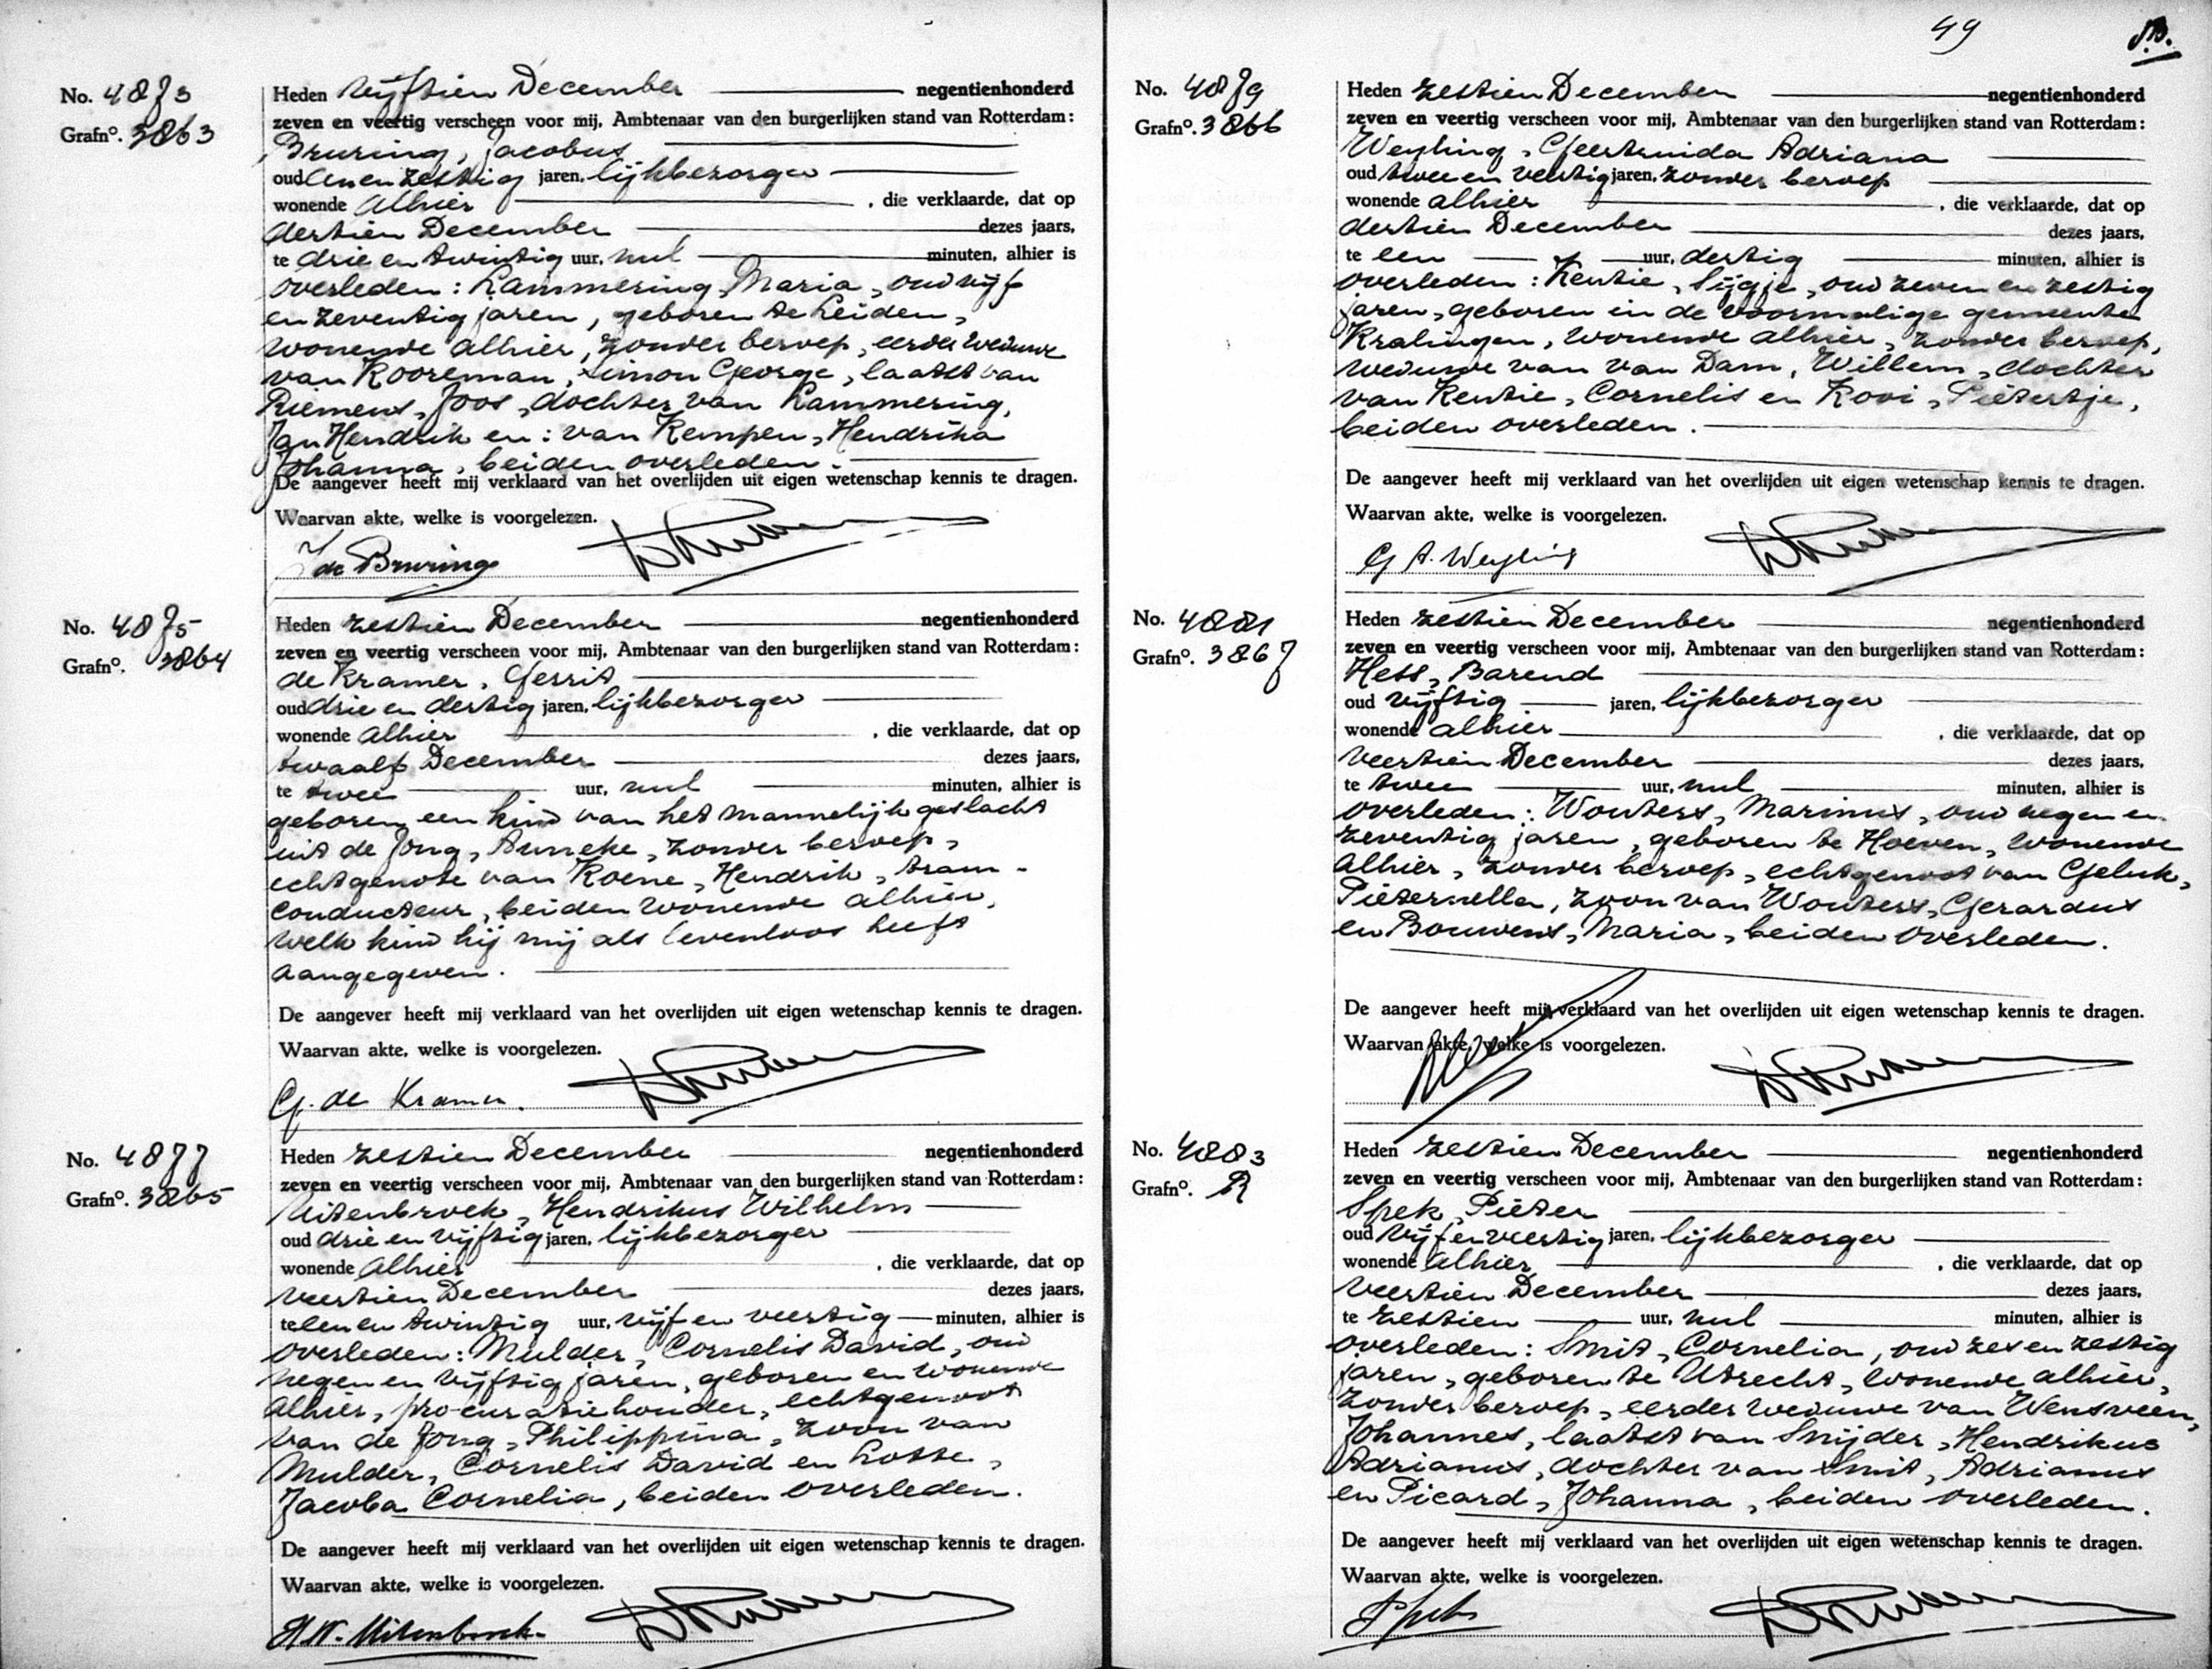 No. 4873
Grafno. 3863
Heden vijftien December negentienhonderd
zeven en veertig verscheen voor mij, Ambtenaar van den burgerlijken stand van Rotterdam:
Bruring, Jacobus
oud een en zestig jaren, lijkbezorger
wonende alhier, die verklaarde, dat op
dertien December dezes jaars,
te drie en twintig uur, nul minuten, alhier is
overleden: Lammering, Maria, oud vijf
en zeventig jaren, geboren te Leiden,
wonende alhier, zonder beroep, eerder weduwe
van Kooreman, Simon George, laatst van
Riemens, Joos, dochter van Lammering,
Jan Hendrik en: van Kempen, Hendrika
Johanna, beiden overleden.
De aangever heeft mij verklaard van het overlijden uit eigen wetenschap kennis te dragen.
Waarvan akte, welke is voorgelezen.
Bruring
No. 4875
Grafno. 3864
Heden zestien December negentienhonderd
zeven en veertig verscheen voor mij, Ambtenaar van den burgerlijken stand van Rotterdam:
de Kramer, Gerrit
oud drie en dertig jaren, lijkbezorger
wonende alhier, die verklaarde, dat op
twaalf December dezes jaars,
te twee uur, nul minuten, alhier is
geboren een kind van het mannelijk geslacht
uit de Jong, Anneke, zonder beroep,
echtgenote van Koene, Hendrik, tram-
conducteur, beiden wonende alhier,
welk kind hij mij als levenloos heeft
aangegeven.
De aangever heeft mij verklaard van het overlijden uit eigen wetenschap kennis te dragen.
Waarvan akte, welke is voorgelezen.
G. de Kramer.
No. 4877
Grafno. 3865
Heden zestien December negentienhonderd
zeven en veertig verscheen voor mij, Ambtenaar van den burgerlijken stand van Rotterdam:
Uitenbroek, Hendrikus Wilhelm
oud drie en vijftig jaren, lijkbezorger
wonende alhier, die verklaarde, dat op
veertien December dezes jaars,
te een en twintig uur, vijf en veertig minuten, alhier is
overleden: Mulder, Cornelis David, oud
negen en vijftig jaren, geboren en wonende
alhier, procuratiehouder, echtgenoot
van de Jong, Philippina, zoon van
Mulder, Cornelis David en Lotte,
Jacoba Cornelia, beiden overleden.
De aangever heeft mij verklaard van het overlijden uit eigen wetenschap kennis te dragen.
Waarvan akte, welke is voorgelezen.
H.W. Uitenbroek.
49
No. 4879
Grafno. 3866
Heden zestien December negentienhonderd
zeven en veertig verscheen voor mij, Ambtenaar van den burgerlijken stand van Rotterdam:
Weyling, Geertruida Adriana
oud twee en veertig jaren, zonder beroep
wonende alhier, die verklaarde, dat op
dertien December dezes jaars,
te een uur, dertig minuten, alhier is
overleden: Kentie, Sijgje, oud zeven en zestig
jaren, geboren in de voormalige gemeente
Kralingen, wonende alhier, zonder beroep,
weduwe van van Dam, Willem, dochter
van Kentie, Cornelis en Kooi, Pietertje,
beiden overleden.
De aangever heeft mij verklaard van het overlijden uit eigen wetenschap kennis te dragen.
Waarvan akte, welke is voorgelezen.
G A. Weyling
No. 4881
Grafno. 3867
Heden zestien December negentienhonderd
zeven en veertig verscheen voor mij, Ambtenaar van den burgerlijken stand van Rotterdam:
Hess, Barend
oud vijftig jaren, lijkbezorger
wonende alhier, die verklaarde, dat op
veertien December dezes jaars,
te twee uur, nul minuten, alhier is
overleden: Wouters, Marinus, oud negen en
zeventig jaren, geboren te Hoeven, wonende
alhier, zonder beroep, echtgenoot van Geluk,
Pieternella, zoon van Wouters, Gerardus
en Bouwens, Maria, beiden overleden.
De aangever heeft mij verklaard van het overlijden uit eigen wetenschap kennis te dragen.
Waarvan akte, welke is voorgelezen.
No. 4883
Grafno. R
Heden zestien December negentienhonderd
zeven en veertig verscheen voor mij, Ambtenaar van den burgerlijken stand van Rotterdam:
Spek, Pieter
oud vijf en veertig jaren, lijkbezorger
wonende alhier, die verklaarde, dat op
veertien December dezes jaars,
te zestien uur, nul minuten, alhier is
overleden: Smit, Cornelia, oud zes en zestig
jaren, geboren te Utrecht, wonende alhier,
zonder beroep, eerder weduwe van Wensveen,
Johannes, laatst van Snijder, Hendrikus
Adrianus, dochter van Smit, Adrianus
en Picard, Johanna, beiden overleden.
De aangever heeft mij verklaard van het overlijden uit eigen wetenschap kennis te dragen.
Waarvan akte, welke is voorgelezen.
PSpek